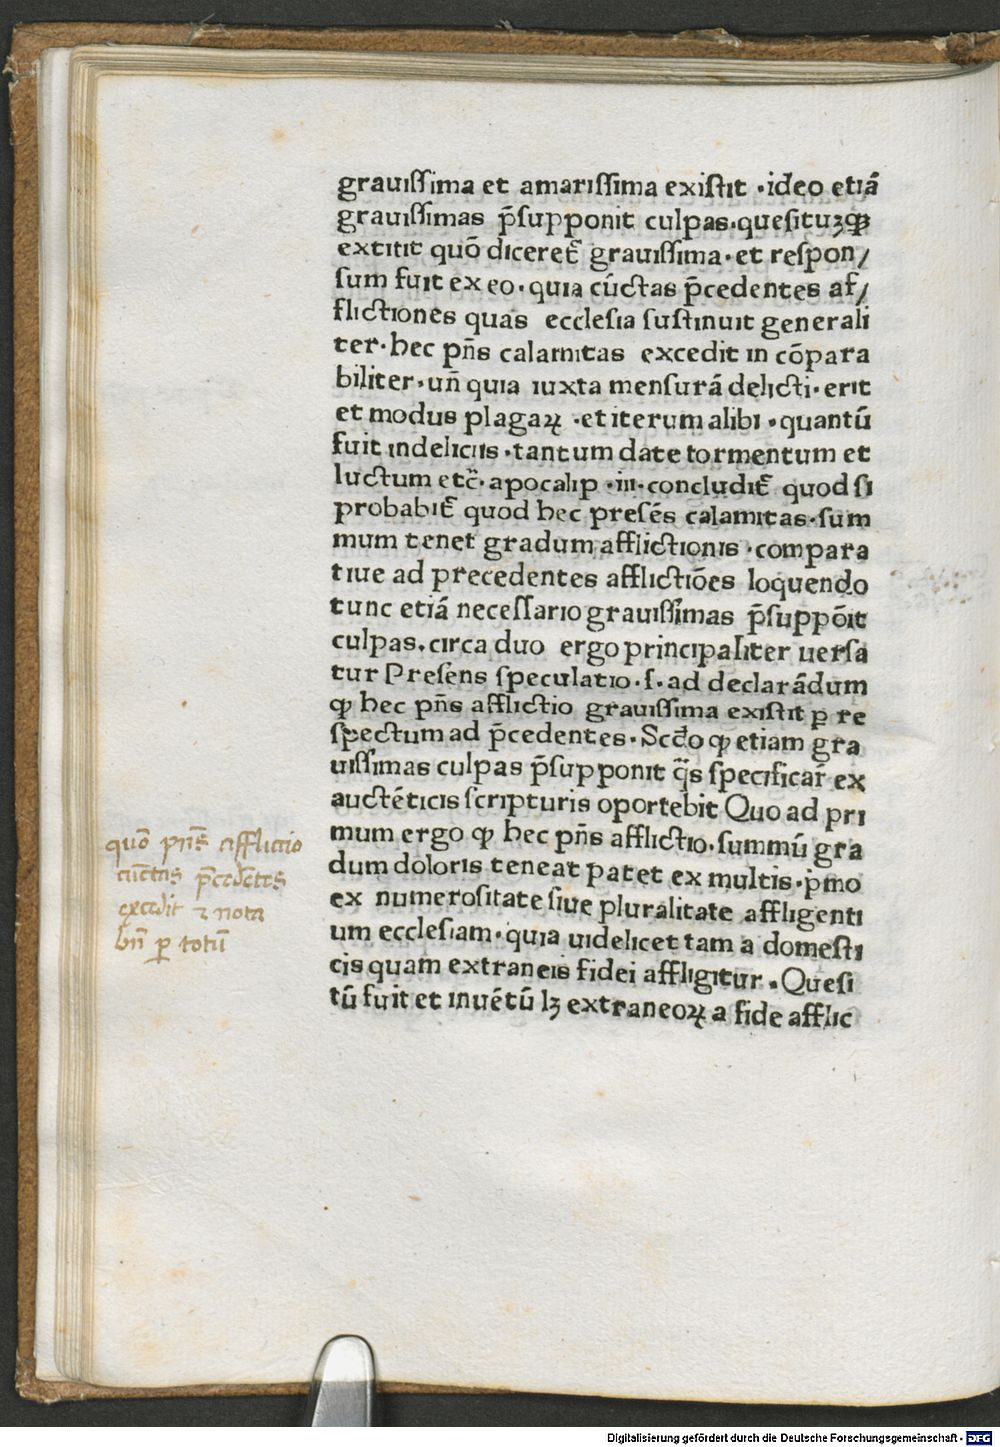 grauiſſima et amariſſima exiſtit ·ideo etiā
grauiſſimas p̄ſupponit culpas·queſituꝫꝙ
extitit quō diceret᷑ grauiſſima·et reſpon/
ſum fuit ex eo·quia cūctas p̄cedentes af/
flictiones quas eccleſia ſuſtinuit generali
ter·hec pn̄s calamitas excedit in cōpara
biliter·un̄ quia iuxta menſurā delicti·erit
et modus plagaꝝ ·et iterum alibi ·quantū
fuit indeliciis ·tantum date tormentum et
luctum etc̄·apocalip ·iii·concludit᷑ quod ſi
probabit᷑ quod hec preſēs calamitas·ſum
mum tenet gradum afflictionis ·compara
tiue ad precedentes afflictiōes loquendo
tunc etiā neceſſario grauiſſimas p̄ſuppōit
culpas·circa duo ergo principaliter uerſa
tur Preſens ſpeculatio·ſ·ad declarādum
ꝙ hec pn̄s afflictio grauiſſima exiſtit ꝑ re
ſpectum ad p̄cedentes·Scd̄o ꝙ etiam gra
uiſſimas culpas p̄ſupponit q̄s ſpecificar̄ ex
auctēticis ſcripturis oportebit Quo ad pri
mum ergo ꝙ hec pn̄s afflictio·ſummū gra
dum doloris teneat patet ex multis·pͥmo
ex numeroſitate ſiue pluralitate affligenti
um eccleſiam·quia uidelicet tam a domeſti
cis quam extraneis fidei affligitur ·Queſi
tū fuit et inuētū lꝫ extraneoꝝ a fide afflic
quō pn̄s afflictio
cūctas p̄cedētes
excedit ⁊ nota
bn̄ ꝑ totū
Digitalisierung gefördert durch die Deutsche Forschungsgemeinschaft - DFG